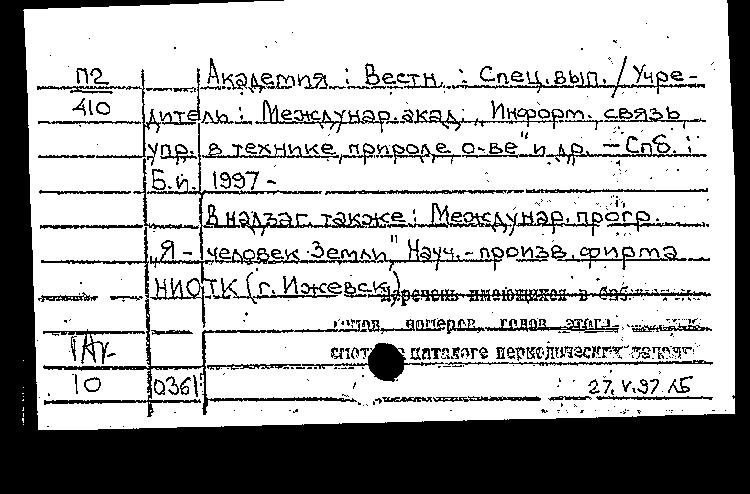 П2 Академия : Вестн. : Спец.вып. / Учре-
410 дитель : Междунар.акад. „Информ. связь,
упр. в технике, природе, о-ве" и др. – Спб. :
Б.и. 1997 -
В надзаг. также : Междунар. прогр.
„Я - человек Земли", Науч.-произв. фирма
НИОТК (г. Ижевск)
Перечень имеющихся в
номеров, годов этого
смот в каталоге периодических
10 0361 27.V.97